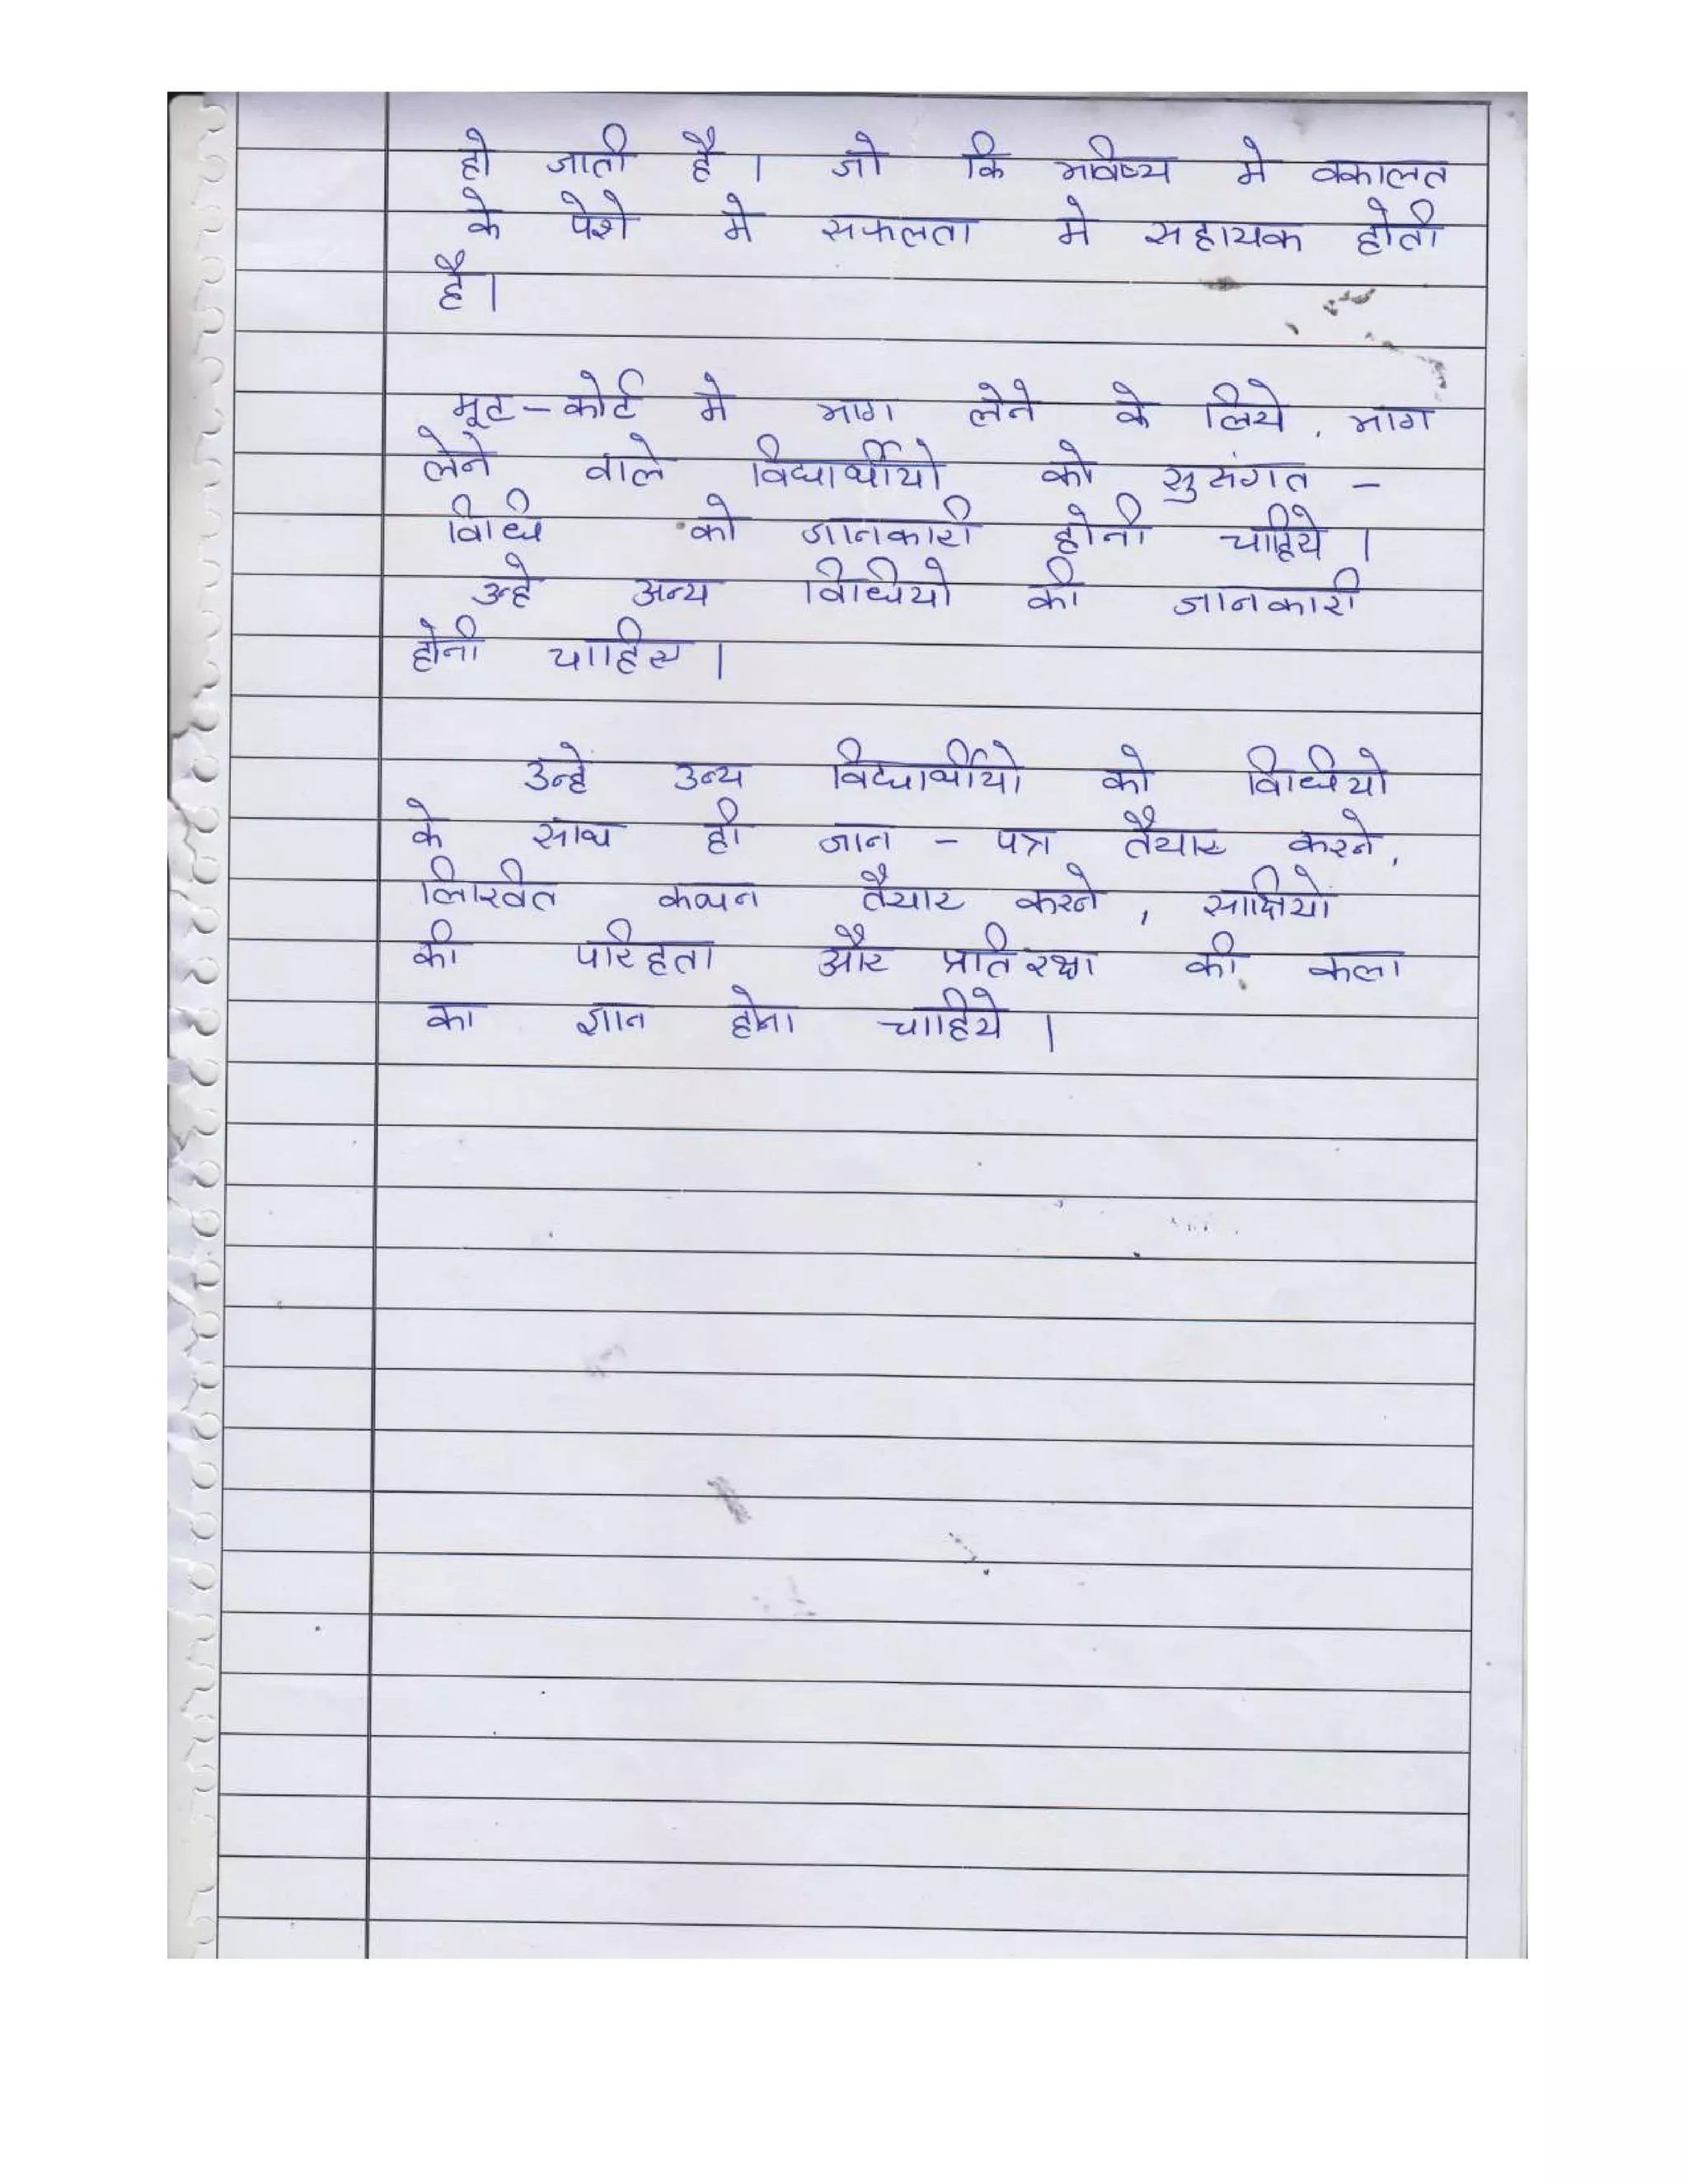 हो जाती है । जो कि भविष्य मे वकालत
के पेशे मे सफलता मे सहायक होती
है।
मूट - कोर्ट मे भाग लेने के लिये , भाग
लेने वाले विद्यार्थीयो को सुसंगत -
विधि को जानकारी होनी चाहिये ।
उन्हे अन्य विधियो की जानकारी
होनी चाहिए ।
उन्हे उन्य विद्यार्थीयो को विधियो
के साथ ही जान - पत्र तैयार करने ,
लिखित कथन तैयार करने , साक्षियो
की परिहता और प्रतिरक्षा की कला
का ज्ञान होना चाहिये ।